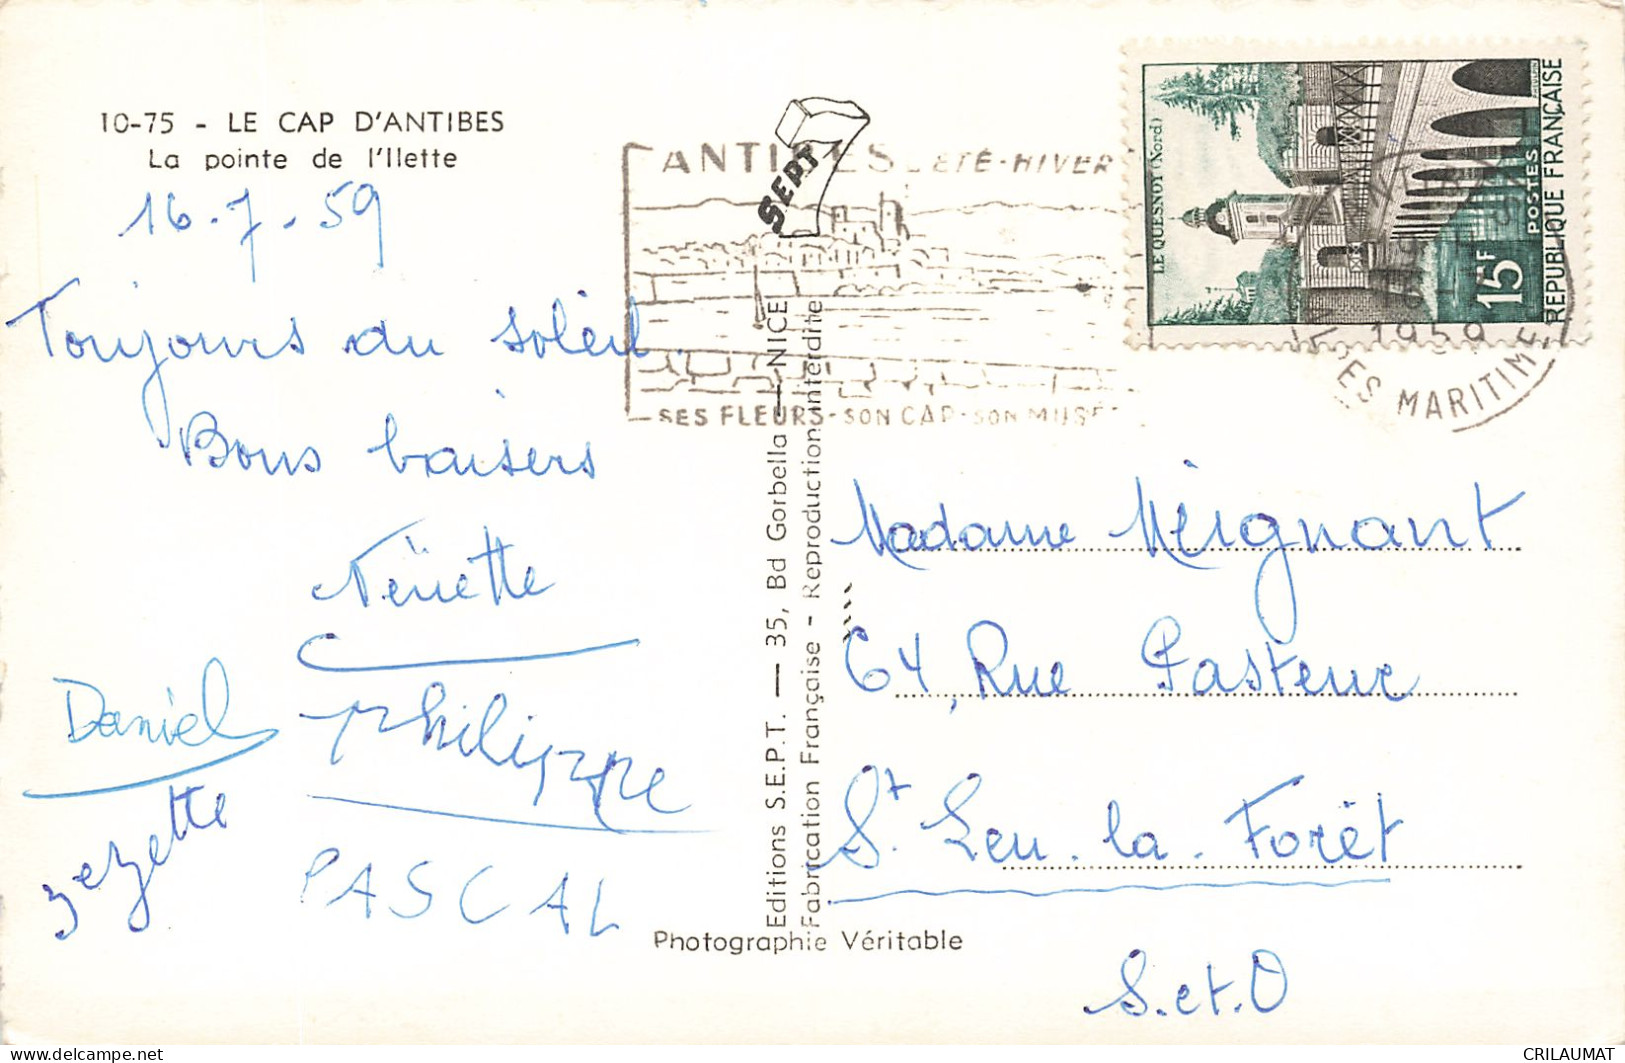 10-75 - LE CAP D'ANTIBES
La pointe de l'Ilette
16.7.59
Toujours du soleil.
Bons baisers
Nénette
Daniel
Philippe
zezette
PASCAL
SEPT
ÉTÉ-HIVER
SES FLEURS-SON CAP-SON MUSÉ
LE QUESNOY (Nord)
POSTES
15F
RÉPUBLIQUE FRANÇAISE
1959
ALPES MARITIMES
Editions S.E.P.T. — 35, Bd Gorbella — NICE
Fabrication Française - Reproduction interdite
Madame Mignant
64, Rue Pasteur
St Leu. la. Forêt
S.et.O
Photographie Véritable
delcampe.net
CRILAUMAT